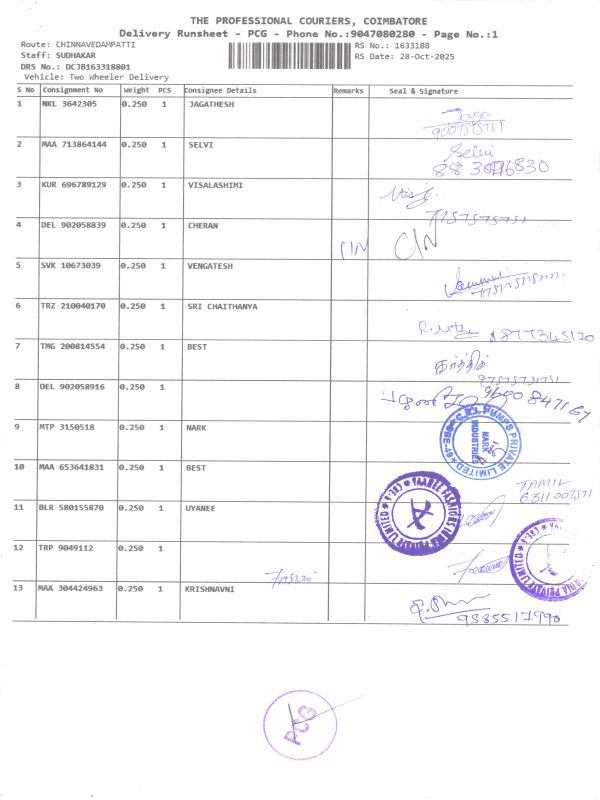 THE PROFESSIONAL COURIERS, COIMBATORE
Delivery Runsheet - PCG - Phone No.:9047080280 - Page No.:1
Route: CHINNAVEDAMPATTI
RS No.: 1633188
Staff: SUDHAKAR
RS Date: 28-Oct-2025
DRS No.: DCJB163318801
Vehicle: Two Wheeler Delivery
S No Consignment No Weight PCS Consignee Details Remarks Seal & Signature
1 NKL 3642305 0.250 1 JAGATHESH
2 MAA 713864144 0.250 1 SELVI Selvi
3 KUR 696789129 0.250 1 VISALASHIMI
4 DEL 902058839 0.250 1 CHERAN CIN CIN
5 SVK 10673039 0.250 1 VENGATESH
6 TRZ 210040170 0.250 1 SRI CHAITHANYA
7 TMG 200814554 0.250 1 BEST கார்த்திக்
8 DEL 902058916 0.250 1 9600847167
9 MTP 3150518 0.250 1 NARK
NARK INDUSTRIES
10 MAA 653641831 0.250 1 BEST TAMIL
11 BLR 580155870 0.250 1 UYANEE
12 TRP 9049112 0.250 1
13 MAA 304424963 0.250 1 KRISHNAVNI
9585517990
PCG